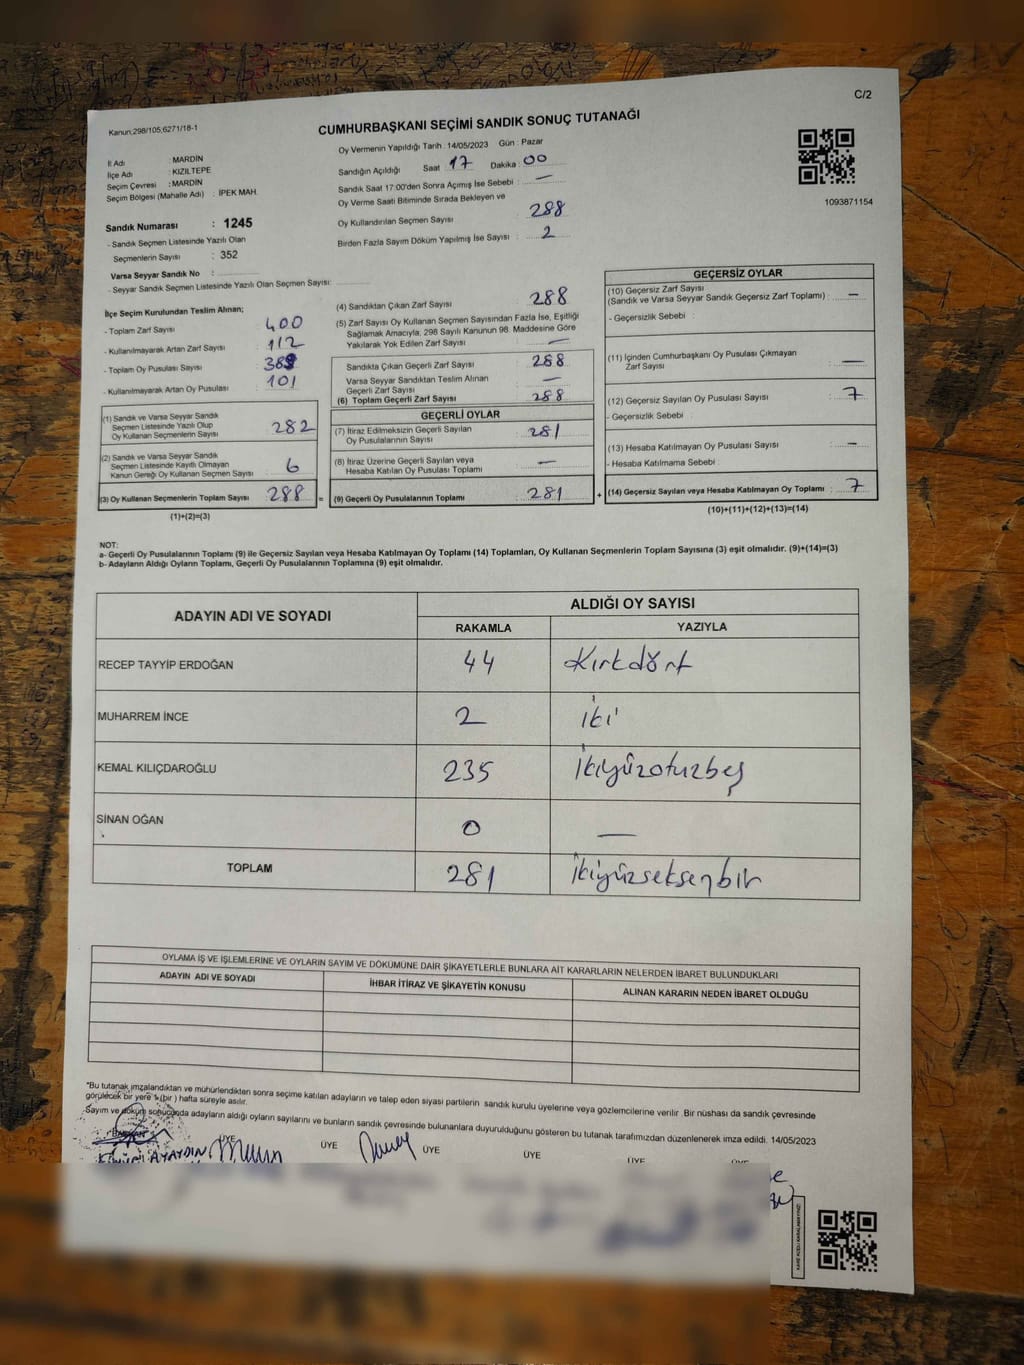 Kanun,298/105,6271/18-1
C/2
CUMHURBAŞKANI SEÇİMİ SANDIK SONUÇ TUTANAĞI
İl Adı : MARDİN
İlçe Adı : KIZILTEPE
Seçim Çevresi : MARDİN
Seçim Bölgesi (Mahalle Adı) : İPEK MAH.
Sandık Numarası : 1245
- Sandık Seçmen Listesinde Yazılı Olan
Seçmenlerin Sayısı : 352
Varsa Seyyar Sandık No :
- Seyyar Sandık Seçmen Listesinde Yazılı Olan Seçmen Sayısı:
Oy Vermenin Yapıldığı Tarih : 14/05/2023 Gün : Pazar
Sandığın Açıldığı Saat 17 Dakika : 00
Sandık Saat 17:00'den Sonra Açımış İse Sebebi : —
Oy Verme Saati Bitiminde Sırada Bekleyen ve
Oy Kullandırılan Seçmen Sayısı : 288
Birden Fazla Sayım Döküm Yapılmış İse Sayısı : 2
1093871154
İlçe Seçim Kurulundan Teslim Alınan;
- Toplam Zarf Sayısı : 400
- Kullanılmayarak Artan Zarf Sayısı : 112
- Toplam Oy Pusulası Sayısı :
- Kullanılmayarak Artan Oy Pusulası : 101
(1) Sandık ve Varsa Seyyar Sandık
Seçmen Listesinde Yazılı Olup
Oy Kullanan Seçmenlerin Sayısı : 282
(2) Sandık ve Varsa Seyyar Sandık
Seçmen Listesinde Kayıtlı Olmayan
Kanun Gereği Oy Kullanan Seçmen Sayısı : 6
(3) Oy Kullanan Seçmenlerin Toplam Sayısı : 288 =
(1)+(2)=(3)
(4) Sandıktan Çıkan Zarf Sayısı : 288
(5) Zarf Sayısı Oy Kullanan Seçmen Sayısından Fazla İse, Eşitliği
Sağlamak Amacıyla, 298 Sayılı Kanunun 98. Maddesine Göre
Yakılarak Yok Edilen Zarf Sayısı : —
Sandıkta Çıkan Geçerli Zarf Sayısı : 288
Varsa Seyyar Sandıktan Teslim Alınan
Geçerli Zarf Sayısı : —
(6) Toplam Geçerli Zarf Sayısı : 288
GEÇERLİ OYLAR
(7) İtiraz Edilmeksizin Geçerli Sayılan
Oy Pusulalarının Sayısı : 281
(8) İtiraz Üzerine Geçerli Sayılan veya
Hesaba Katılan Oy Pusulası Toplamı : —
(9) Geçerli Oy Pusulalarının Toplamı : 281 +
GEÇERSİZ OYLAR
(10) Geçersiz Zarf Sayısı
(Sandık ve Varsa Seyyar Sandık Geçersiz Zarf Toplamı) : —
- Geçersizlik Sebebi :
(11) İçinden Cumhurbaşkanı Oy Pusulası Çıkmayan
Zarf Sayısı : —
(12) Geçersiz Sayılan Oy Pusulası Sayısı : 7
- Geçersizlik Sebebi :
(13) Hesaba Katılmayan Oy Pusulası Sayısı : —
- Hesaba Katılmama Sebebi :
(14) Geçersiz Sayılan veya Hesaba Katılmayan Oy Toplamı : 7
(10)+(11)+(12)+(13)=(14)
NOT:
a- Geçerli Oy Pusulalarının Toplamı (9) ile Geçersiz Sayılan veya Hesaba Katılmayan Oy Toplamı (14) Toplamları, Oy Kullanan Seçmenlerin Toplam Sayısına (3) eşit olmalıdır. (9)+(14)=(3)
b- Adayların Aldığı Oyların Toplamı, Geçerli Oy Pusulalarının Toplamına (9) eşit olmalıdır.
ADAYIN ADI VE SOYADI ALDIĞI OY SAYISI
RAKAMLA YAZIYLA
RECEP TAYYİP ERDOĞAN 44 Kırkdört
MUHARREM İNCE 2 iki
KEMAL KILIÇDAROĞLU 235 ikiyüzotuzbeş
SİNAN OĞAN 0 —
TOPLAM 281 ikiyüzseksenbir
OYLAMA İŞ VE İŞLEMLERİNE VE OYLARIN SAYIM VE DÖKÜMÜNE DAİR ŞİKAYETLERLE BUNLARA AİT KARARLARIN NELERDEN İBARET BULUNDUKLARI
ADAYIN ADI VE SOYADI İHBAR İTİRAZ VE ŞİKAYETİN KONUSU ALINAN KARARIN NEDEN İBARET OLDUĞU
"Bu tutanak imzalandıktan ve mühürlendikten sonra seçime katılan adayların ve talep eden siyasi partilerin sandık kurulu üyelerine veya gözlemcilerine verilir .Bir nüshası da sandık çevresinde
görülecek bir yere 1 (bir ) hafta süreyle asılır.
Sayım ve döküm sonucunda adayların aldığı oyların sayılarını ve bunların sandık çevresinde bulunanlara duyurulduğunu gösteren bu tutanak tarafımızdan düzenlenerek imza edildi. 14/05/2023
BAŞKAN ÜYE ÜYE ÜYE ÜYE ÜYE ÜYE
AYAYDIN